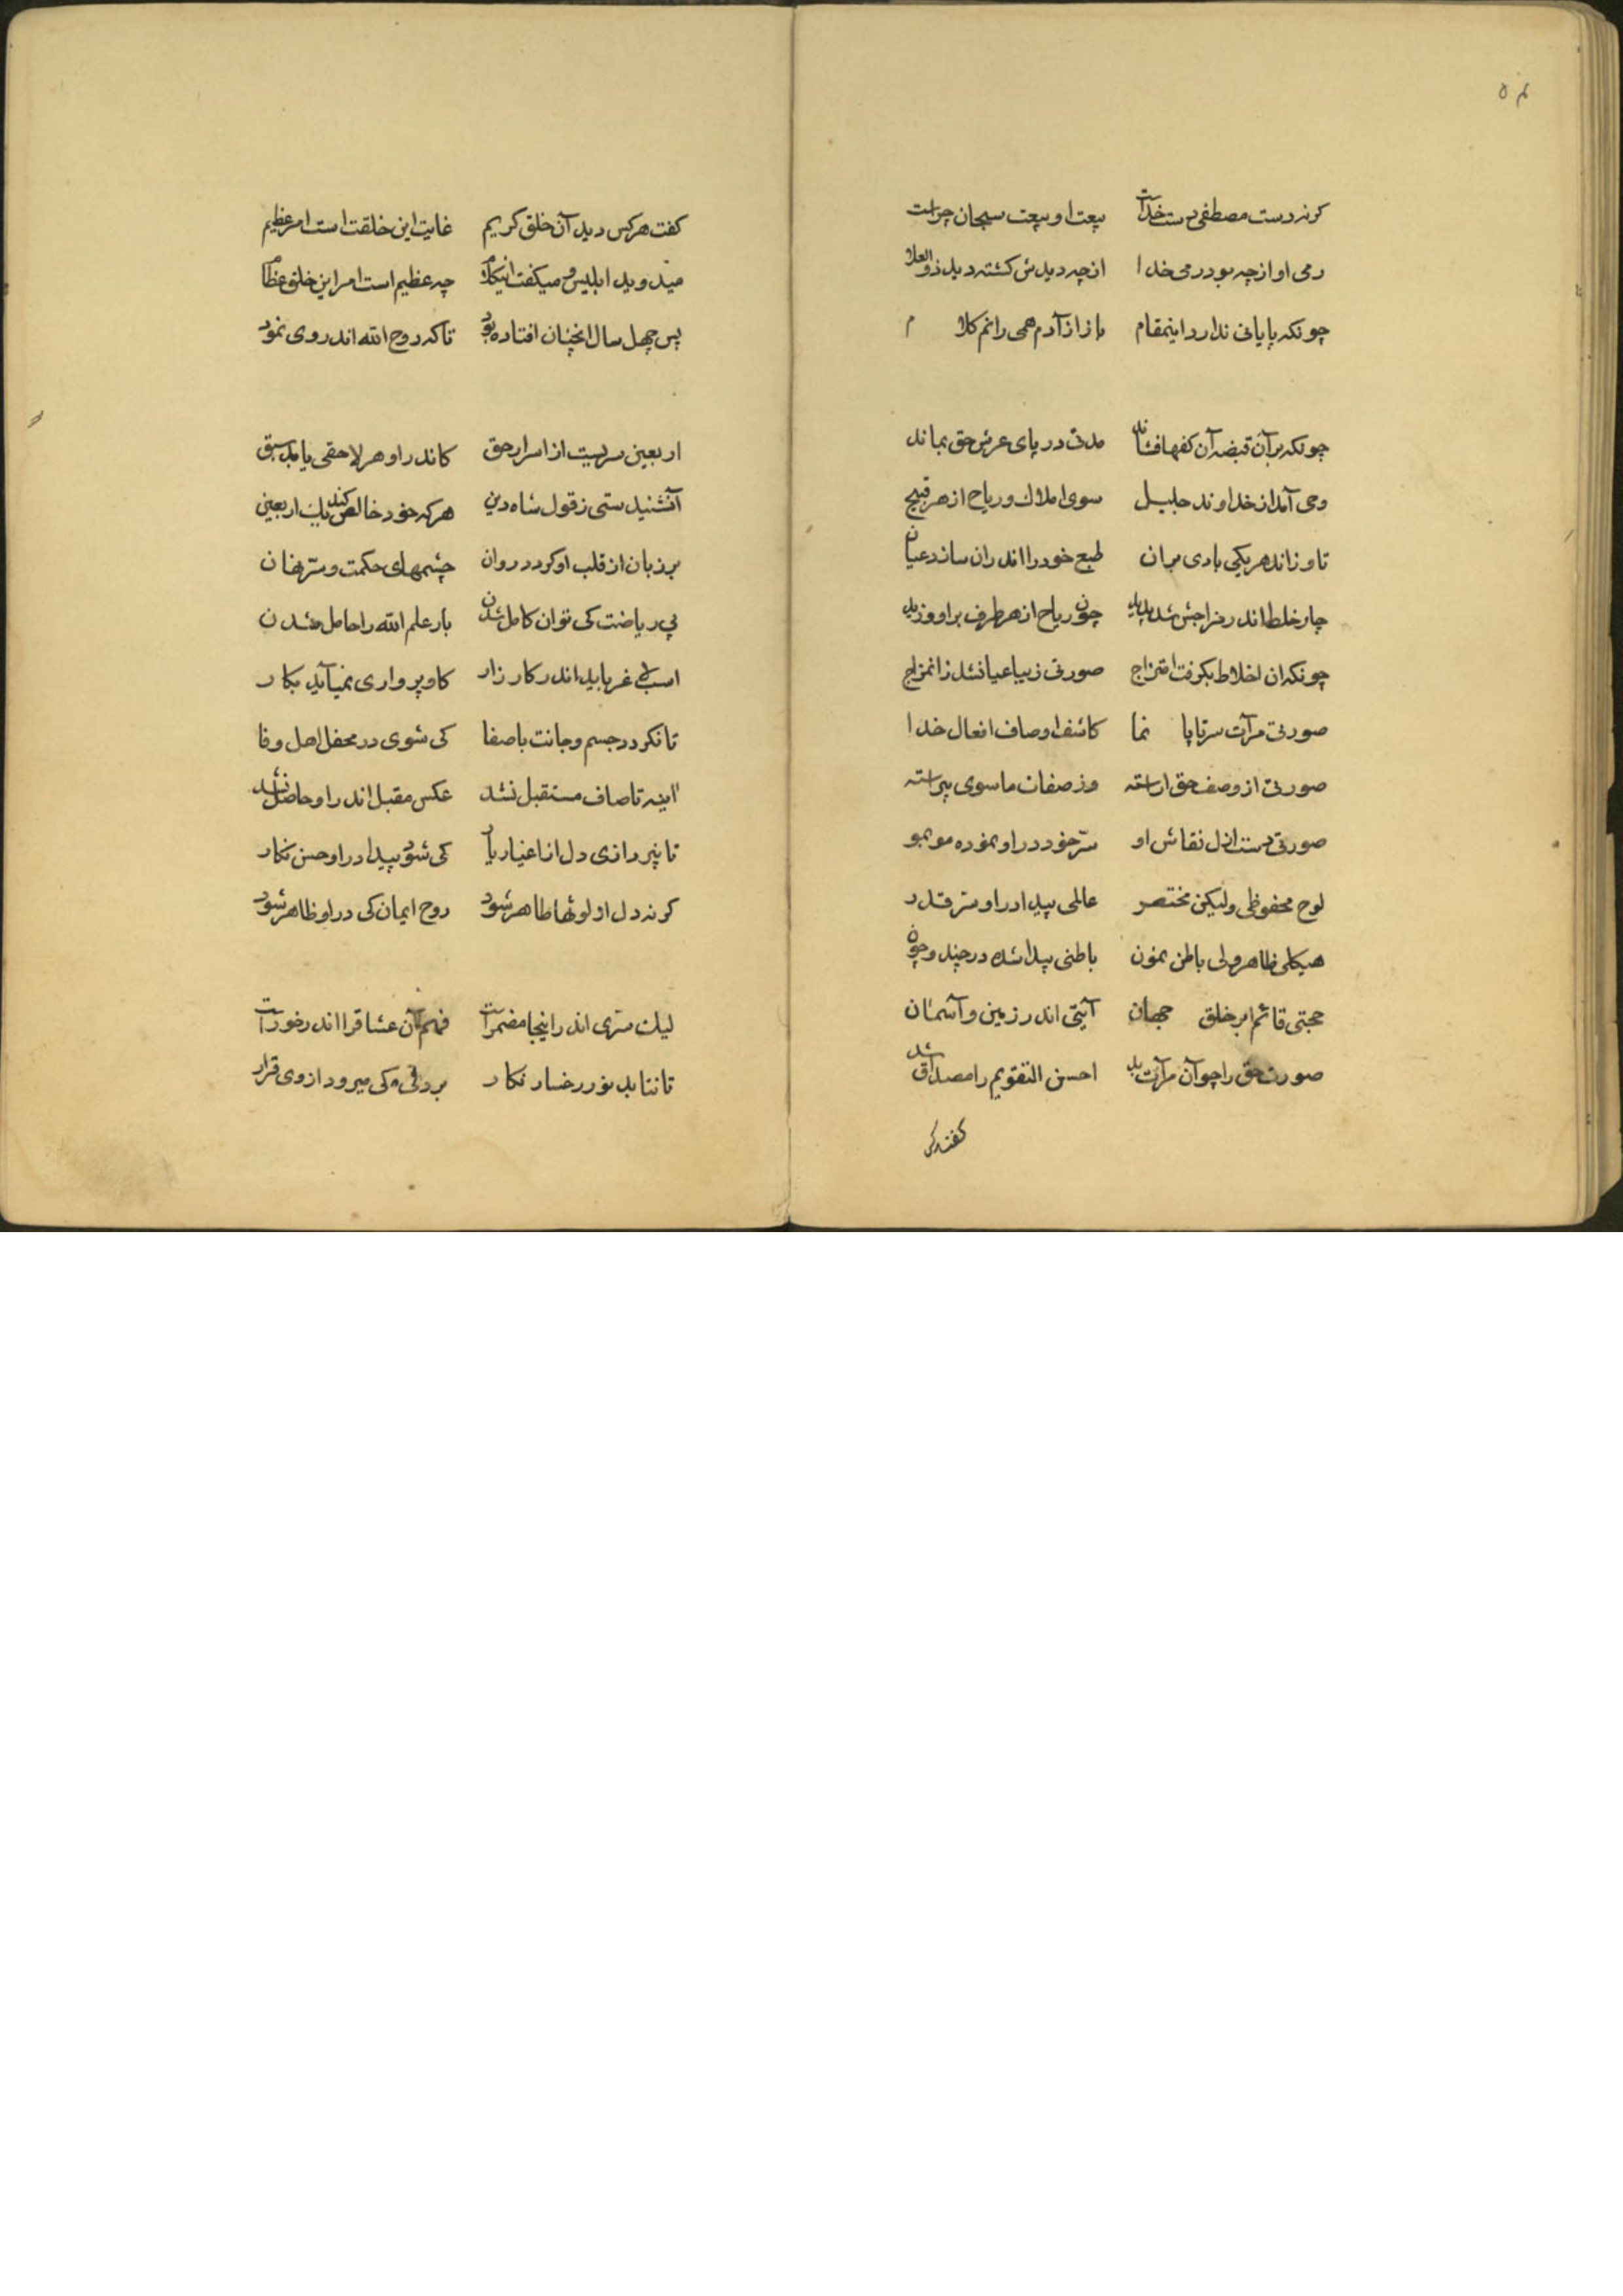 کرنه دست مصطفی دست خداست بیعت او بیعت سبحان چراست
رمی او از چه بود رمی خدا از چه دیدش کشته دید ذوالعلا
چونکه پایانی ندارد اینمقام باز از آدم همی رانم کلام
چونکه بر آن قبضه آن کفها فشاند مدتی در پای عرش حق بماند
وحی آمد از خداوند جلیل سوی املاک و ریاح از هر قبیل
تا وزاند هر یکی بادی بر ان طبع خود را اندران سازد عیان
چار خلط اندر مزاجش شد پدید چون ریاح از هر طرف بر او وزید
چونکه ان اخلاط بکرفت امتزاج صورتی زیبا عیانشد زانمزاج
صورتی مرآت سرتاپا نما کاشف اوصاف افعال خدا
صورتی از وصف حق اراسته وز صفات ماسوی پیراسته
صورتی دست ازل نقاش او سرّ خود در او نموده مو بمو
لوح محفوظی ولیکن مختصر عالمی پیدا در او سرّ قدر
هیکلی ظاهر ولی باطن نمون باطنی پیدا شده در چند و چون
حجتی قائم ابر خلق جهان آیتی اندر زمین و آسمان
صورت حق را چو آن مرآت بد احسن التقویم را مصداق شد
کفت هرکس
۵۴
کفت هرکس دید آن خلق کریم غایت این خلقت است امر عظیم
میدوید ابلیس و میکفت انیکلام چه عظیم است امر این خلق عظام
پس چهل سال انچنان افتاده بود تا که روح الله اندر وی نمود
اربعین سریست از اسرار حق کاندر او هر لاحقی یابد سبق
آنشنیدستی ز قول شاه دین هرکه خود خالص کند یک اربعین
بر زبان از قلب او کردد روان چشمهای حکمت و سرّ نهان
بی ریاضت کی توان کامل شدن بار علم الله را حامل شدن
اسب لاغر باید اندر کارزار کاو پرواری نمیآید بکار
تا نکردد جسم و جانت باصفا کی شوی در محفل اهل وفا
اینه تا صاف مستقبل نشد عکس مقبل اندر او حاصل نشد
تا نپردازی دل از اغیار یار کی شود پیدا در او حسن نکار
کرنه دل از لوثها طاهر شود روح ایمان کی در او ظاهر شود
لیک سرّی اندر اینجا مضمر است فهم آن عشاق را اندرخور است
تا نتابد نور رخسار نکار کی میرود از وی قرار